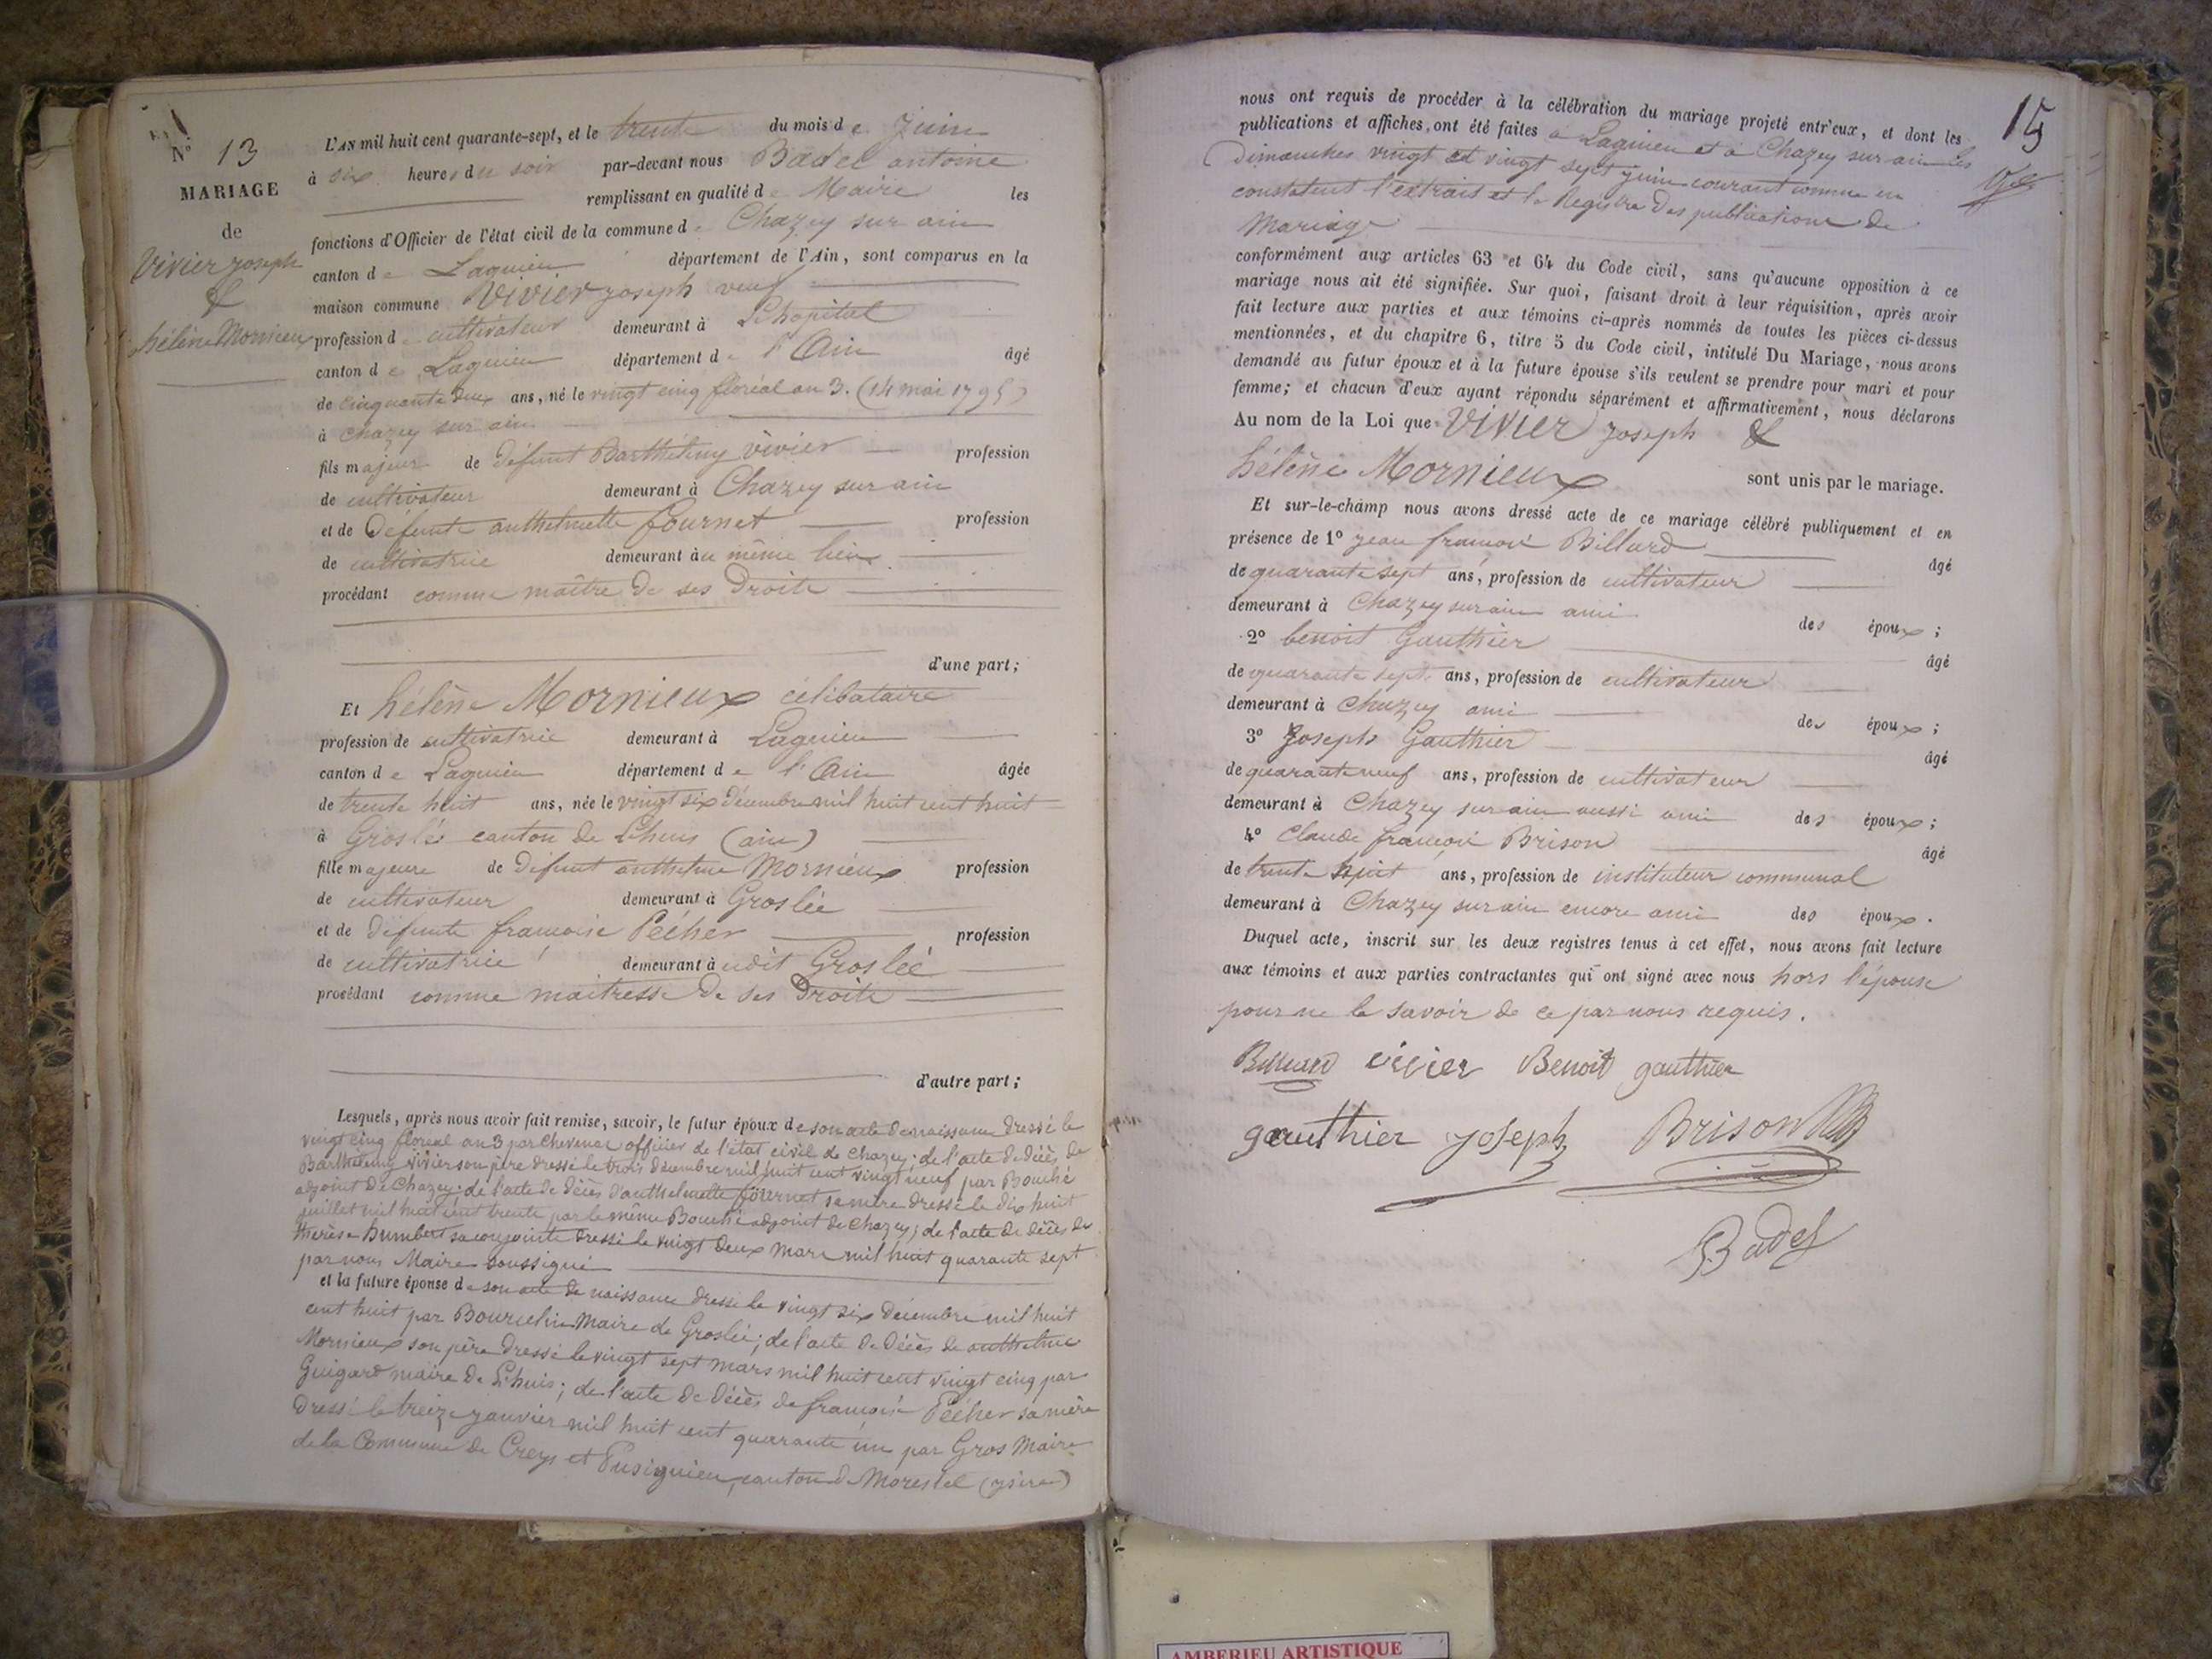 N° 13
MARIAGE
de
Vivier joseph
&
hélène Mornieux
L'AN mil huit cent quarante-sept, et le trente du mois de Juin
à six heures du soir par-devant nous Badel antoine
remplissant en qualité de Maire les
fonctions d'Officier de l'état civil de la commune de Chazey sur ain
canton de Lagnieu département de l'Ain, sont comparus en la
maison commune Vivier joseph veuf
profession de cultivateur demeurant à L'hopital
canton de Lagnieu département de l'Ain âgé
de cinquante deux ans, né le vingt cinq floréal an 3. (14 mai 1795)
à chazey sur ain
fils majeur de défunt Barthélemy vivier profession
de cultivateur demeurant à Chazey sur ain
et de Défunte anthelmette fournet profession
de cultivatrice demeurant au même lieu
procédant comme maître de ses Droits
d'une part;
Et hélène Mornieux célibataire
profession de cultivatrice demeurant à Lagnieu
canton de Lagnieu département de l'Ain âgée
de trente huit ans, née le vingt six décembre mil huit cent huit
à Groslée canton de L'huis (ain)
fille majeure de défunt anthelme Mornieux profession
de cultivateur demeurant à Groslée
et de défunte francoise Pécher profession
de cultivatrice demeurant audit Groslée
procédant comme maitresse de ses Droits
d'autre part;
Lesquels, après nous avoir fait remise, savoir, le futur époux de son acte de naissance dressé le
vingt cinq floreal an 3 par officier de l'état civil de Chazey; de l'acte de décès de
Barthélemy vivier son père dressé le trois décembre mil huit cent vingt neuf par Bouché
adjoint de Chazey; de l'acte de décès d'anthelmette fournet sa mère dressé le dix huit
juillet mil huit cent trente par le même Bouché adjoint de Chazey; de l'acte de décès de
thérèse humbert sa conjointe dressé le vingt deux mars mil huit quarante sept
par nous Maire soussigné
et la future épouse de son acte de naissance dressé le vingt six décembre mil huit
cent huit par Maire de Groslée; de l'acte de décès de anthelme
Mornieux son père dressé le vingt sept mars mil huit cent vingt cinq par
Guigard maire de L'huis; de l'acte de décès de francoise Pécher sa mère
dressé le treize janvier mil huit cent quarante un par Gros Maire
de la Commune de Creys et Pusignieu, canton de Morestel (isère)
15
nous ont requis de procéder à la célébration du mariage projeté entr'eux, et dont les
publications et affiches, ont été faites à Lagnieu et à Chazey sur ain les
Dimanches vingt et vingt sept juin courant comme en
constatent l'extrait et le Registre des publications de
Mariage
conformément aux articles 63 et 64 du Code civil, sans qu'aucune opposition à ce
mariage nous ait été signifiée. Sur quoi, faisant droit à leur réquisition, après avoir
fait lecture aux parties et aux témoins ci-après nommés de toutes les pièces ci-dessus
mentionnées, et du chapitre 6, titre 5 du Code civil, intitulé Du Mariage, nous avons
demandé au futur époux et à la future épouse s'ils veulent se prendre pour mari et pour
femme; et chacun d'eux ayant répondu séparément et affirmativement, nous déclarons
Au nom de la Loi que Vivier joseph &
hélène Mornieux sont unis par le mariage.
Et sur-le-champ nous avons dressé acte de ce mariage célébré publiquement et en
présence de 1° jean francois Billard âgé
de quarante sept ans, profession de cultivateur
demeurant à Chazey sur ain ami des époux;
2° benoit Gauthier âgé
de quarante sept ans, profession de cultivateur
demeurant à Chazey ami des époux;
3° Joseph Gauthier âgé
de quarante neuf ans, profession de cultivateur
demeurant à Chazey sur ain aussi ami des époux;
4° Claude francois Brison âgé
de trente huit ans, profession de instituteur communal
demeurant à Chazey sur ain encore ami des époux.
Duquel acte, inscrit sur les deux registres tenus à cet effet, nous avons fait lecture
aux témoins et aux parties contractantes qui ont signé avec nous hors l'épouse
pour ne le savoir de ce par nous requis.
Billiard vivier Benoit gauthier
gauthier joseph Brison
Badel
AMBERIEU ARTISTIQUE